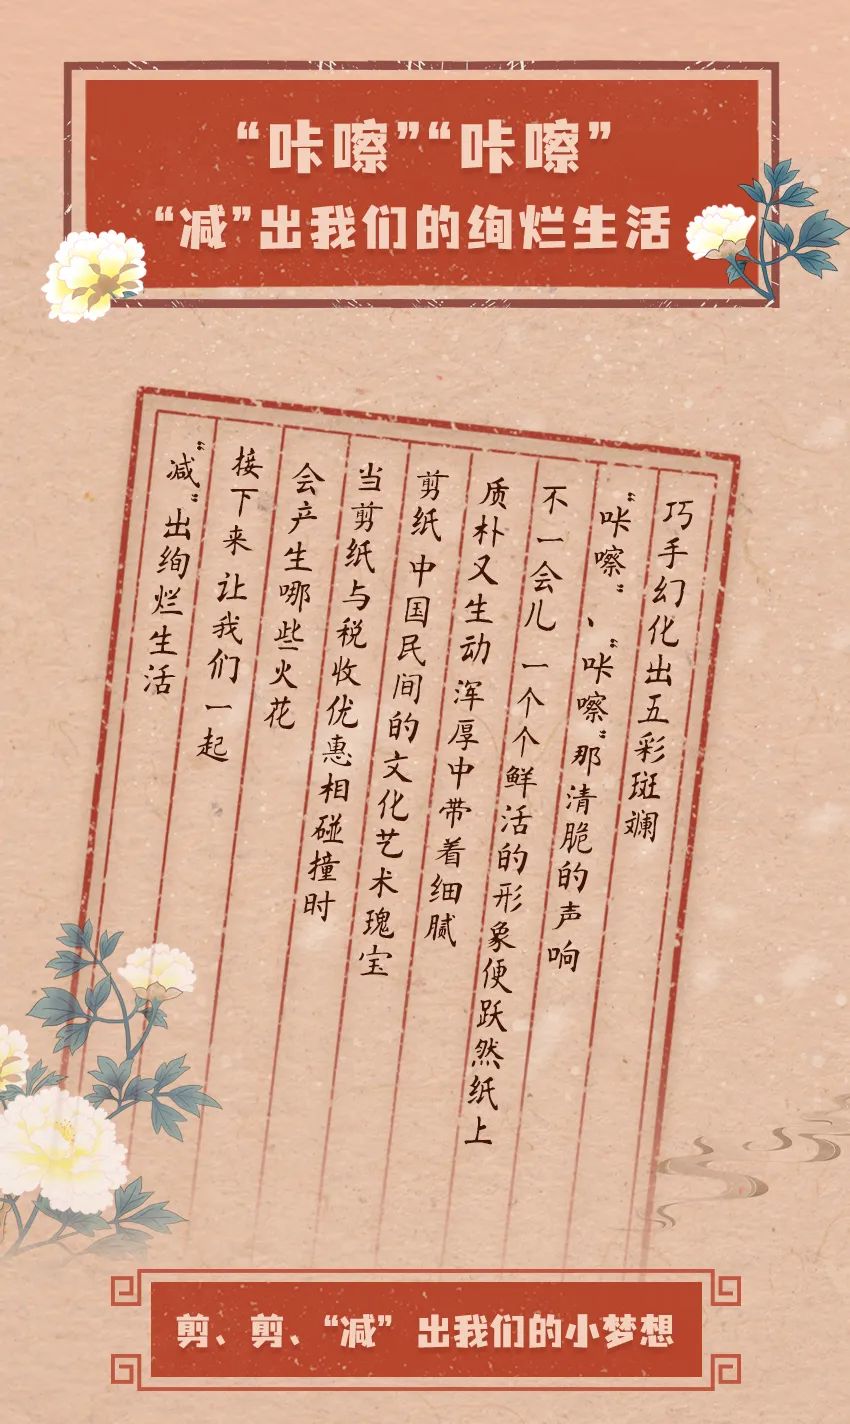 “咔嚓”“咔嚓”
“减”出我们的绚烂生活
巧手幻化出五彩斑斓
“咔嚓”、“咔嚓”那清脆的声响
不一会儿 一个个鲜活的形象便跃然纸上
质朴又生动 浑厚中带着细腻
剪纸 中国民间的文化艺术瑰宝
当剪纸与税收优惠相碰撞时
会产生哪些火花
接下来 让我们一起
“减”出绚烂生活
剪、剪、“减” 出我们的小梦想